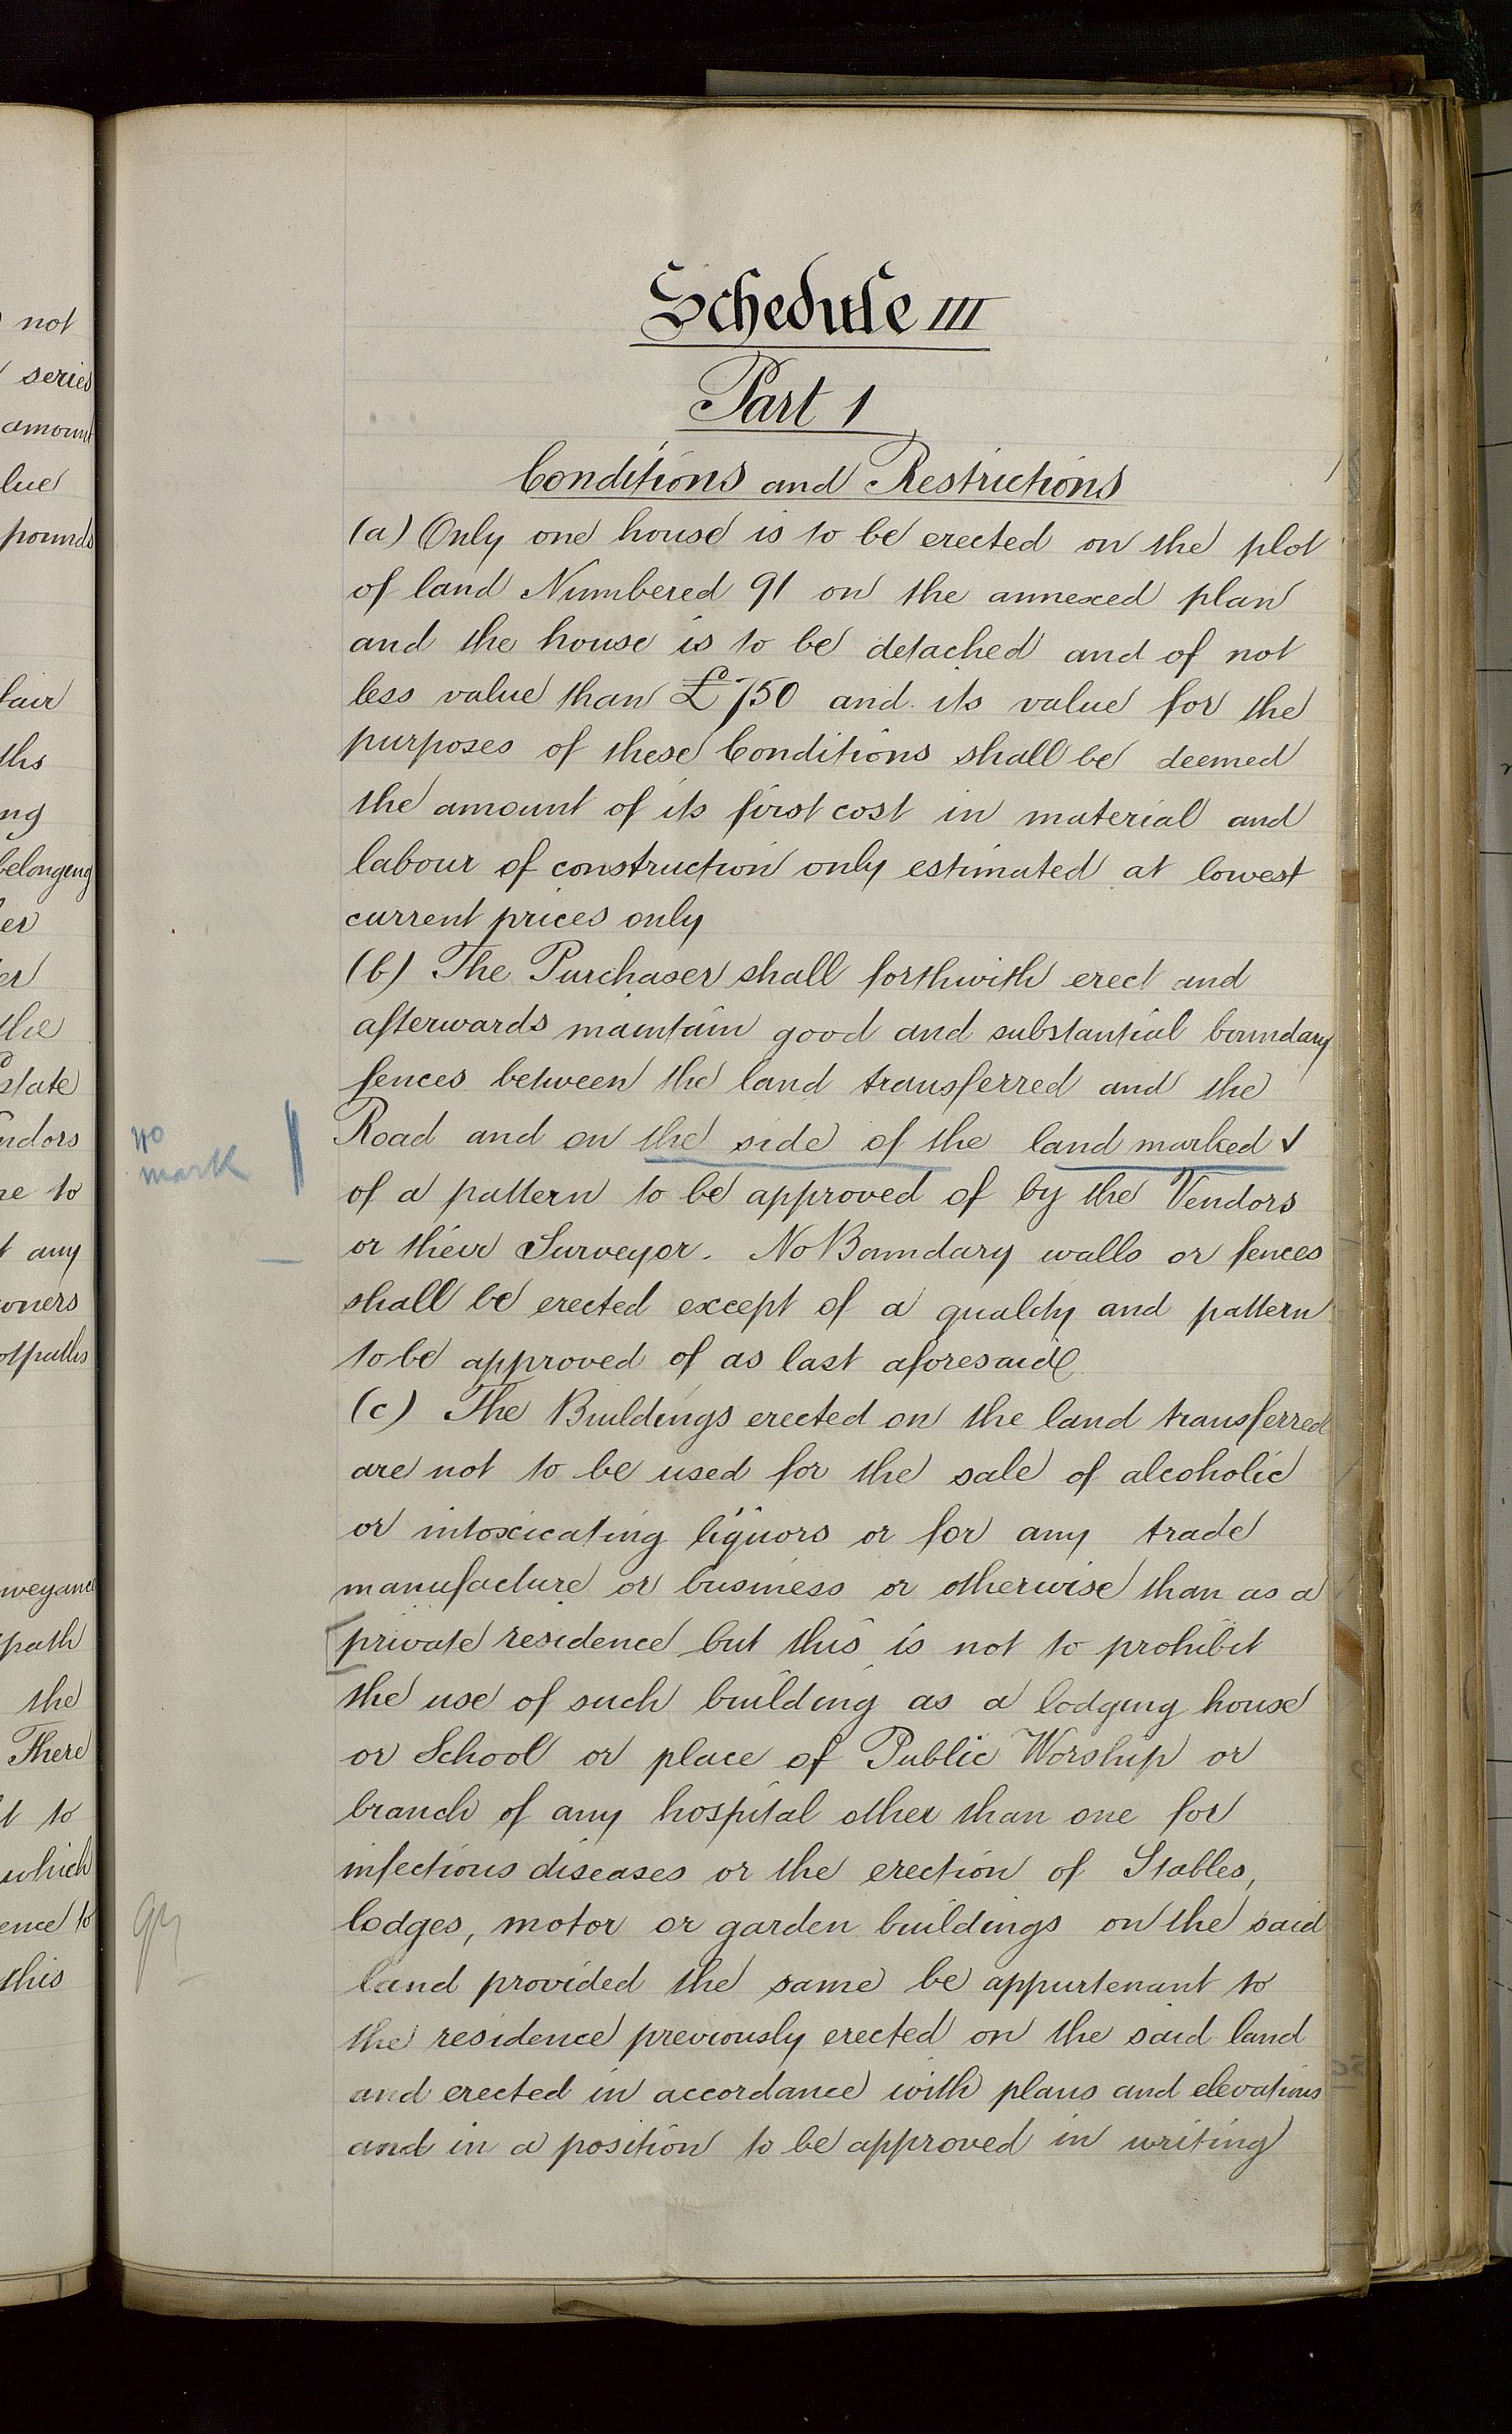 not
series
amount
lue
pounds
fair
ths
ng
belonging
er
er
the
state
ndors
re to
t any
owners
otpaths
nveyance
path
the
There
t to
which
ence to
this
Schedule III
Part 1
Conditions and Restrictions
(a) Only one house is to be erected on the plot
of land Numbered 91 on the annexed plan
and the house is to be detached and of not
less value than £750 and its value for the
purposes of these Conditions shall be deemed
the amount of its first cost in material and
labour of construction only estimated at lowest
current prices only
(b) The Purchaser shall forthwith erect and
afterwards maintain good and substantial boundary
fences between the land transferred and the
no
mark
Road and on the side of the land marked ✓
of a pattern to be approved of by the Vendors
or their Surveyor. No Boundary walls or fences
shall be erected except of a quality and pattern
to be approved of as last aforesaid
(c) The Buildings erected on the land transferred
are not to be used for the sale of alcoholic
or intoxicating liquors or for any trade
manufacture or business or otherwise than as a
[private residence but this is not to prohibit
the use of such building as a lodging house
or School or place of Public Worship or
branch of any hospital other than one for
infectious diseases or the erection of Stables,
lodges, motor or garden buildings on the said
land provided the same be appurtenant to
the residence previously erected on the said land
and erected in accordance with plans and elevations
and in a position to be approved in writing